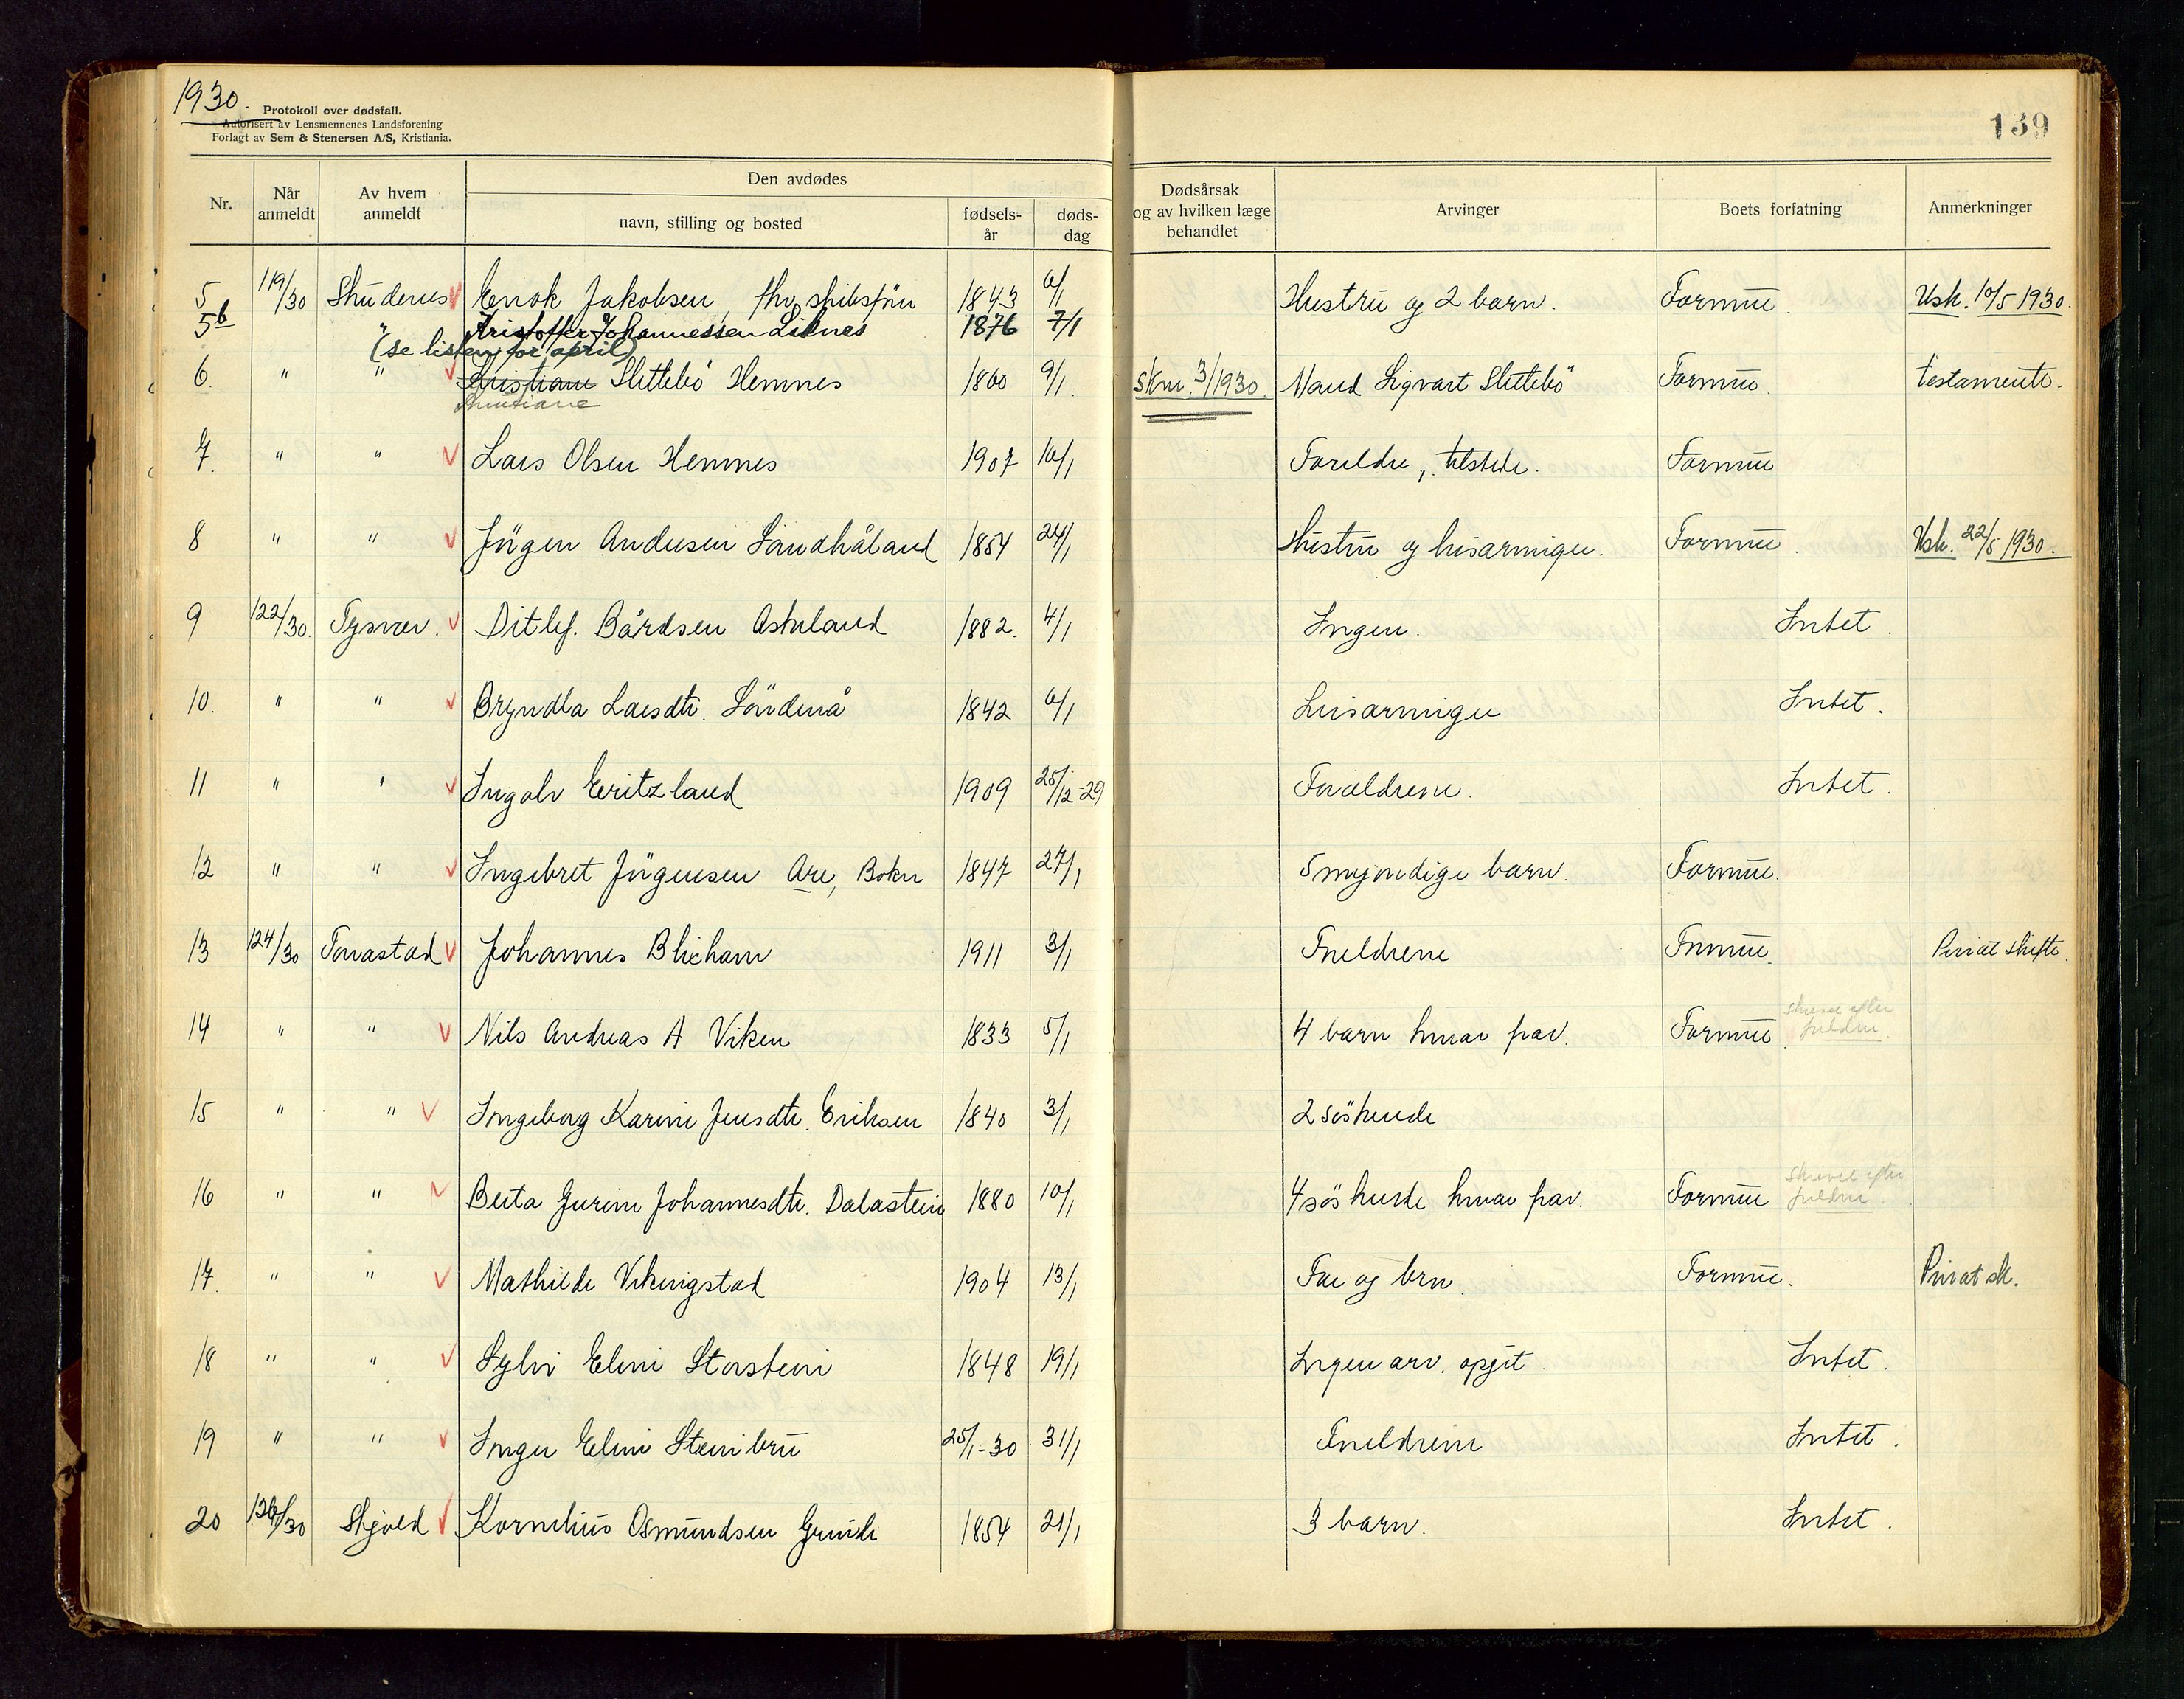 1930.
Protokoll over dødsfall.
Autorisert av Lensmennenes Landsforening
Forlagt av Sem & Stenersen A/S, Kristiania.
139
Nr. Når anmeldt Av hvem anmeldt Den avdødes navn, stilling og bosted fødsels-år døds-dag Dødsårsak og av hvilken læge behandlet Arvinger Boets forfatning Anmerkninger
5 119/30 Skudenes Enok Jakobsen, fhv. skibsfører 1843 6/1 Hustru og 2 barn. Formue. Usk. 10/5 1930.
5b " Kristoffer Johannessen Liknes 1876 7/1
(se listen for april)
6. " " Kristiane Slettebö Hemnes 1860 9/1 Skm. 3/1930. Mand Sigvart Slettebö Formue. testamente.
Kristiane
7. " " Lars Olsen Hemnes 1907 10/1 Foreldre, tilstede. Formue
8 " " Jörgen Andersen Sandhåland 1854 24/1 Hustru og livsarvinger. Formue. Usk. 22/5 1930.
9 122/30. Tysvær. Ditlef. Bårdsen Askeland 1882. 4/1 Ingen. Intet.
10. " " Bryndla Larsdtr. Söndenå 1842 6/1 Livsarvinger Intet.
11 " " Ingolv Eeritzland 1909 25/12-29 Forældrene. Intet.
12 " " Ingebret Jörgensen Are, Bokn 1847 27/1 5 myndige barn. Formue.
13 124/30 Torvastad Johannes Blikham 1911 3/1 Foreldrene Formue. Privat skifte.
14 " " Nils Andreas A Viken 1833 5/1 4 barn hvorav frav. Formue. skrevet efter fuldm.
15 " " Ingeborg Karine Jensdtr. Eriksen 1840 3/1 2 söskende
16 " " Berta Gurine Johannesdtr. Dalastein 1880 10/1 4 söskende hvorav frav. Formue skrevet efter fuldm.
17. " " Mathilde Vikingstad 1904 13/1 Far og brn. Formue. Privat sk.
18 " " Sylvi Eline Storstein 1848 19/1 Ingen arv. opgit. Intet.
19 " " Inger Eline Steinbru 25/1-30 31/1 Foreldrene Intet.
20 126/30 Skjold Kornelius Osmundsen Grinde 1854 21/1 3 barn. Intet.